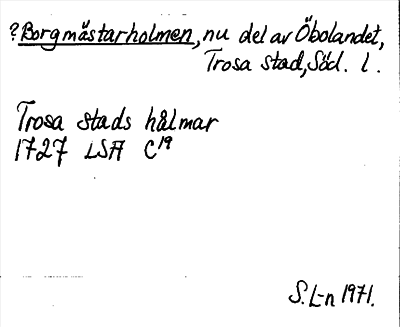 ?Borgmästarholmen, nu del av Öbolandet,
Trosa stad, Söd. l.
Trosa stads hålmar
1727 LSA C19
S. L-n 1971.